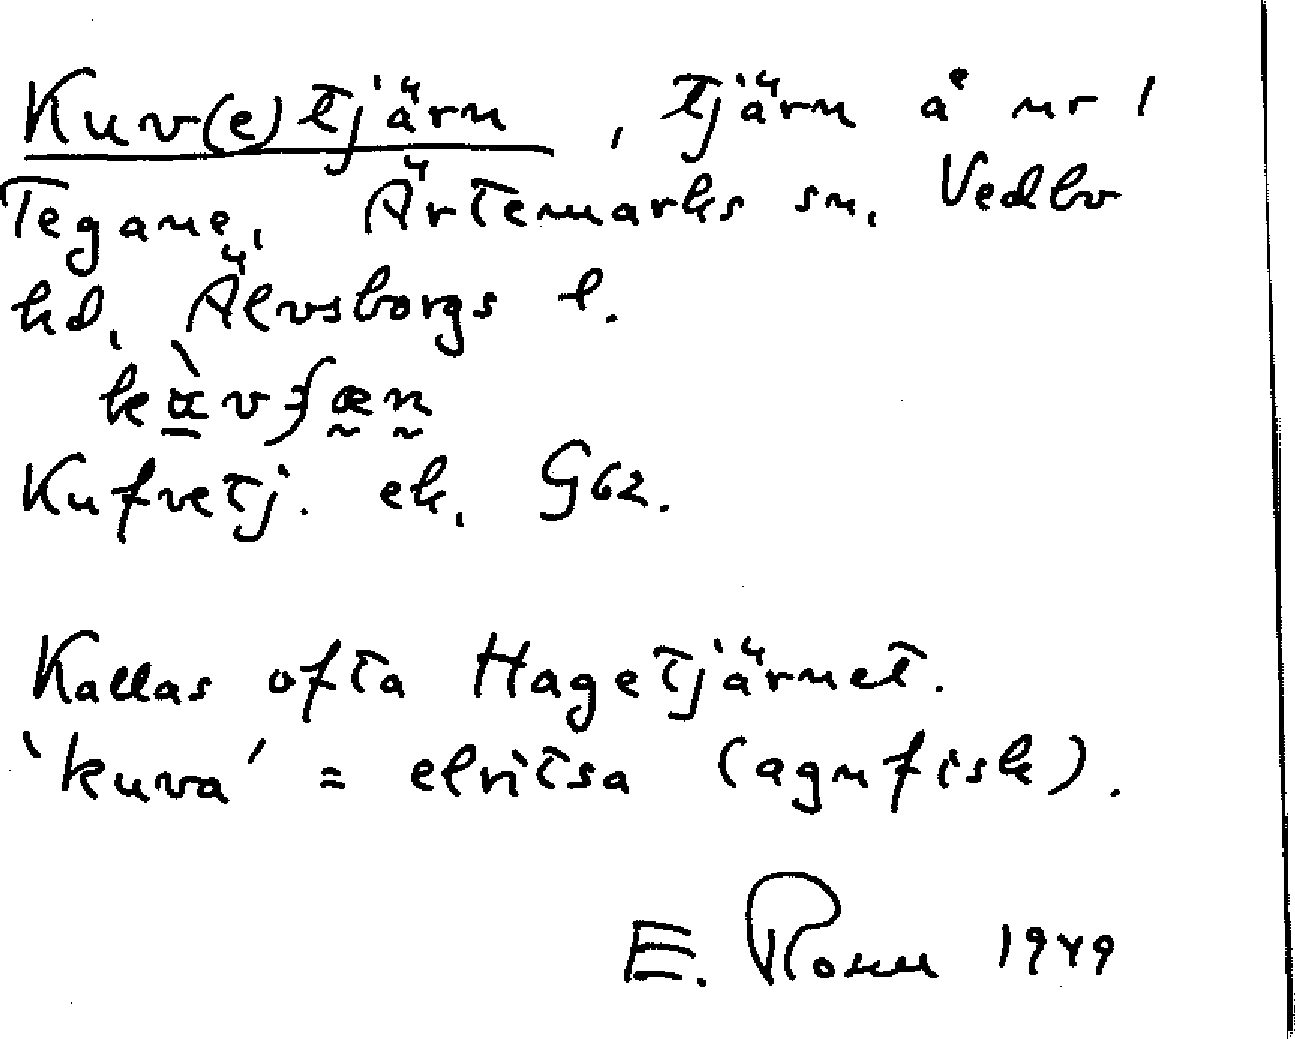 Kuv(e)tjärn, tjärn å nr 1
Tegane, Ärtemarks sn, Vedbo
hd, Älvsborgs l.
Kufvetj. ek. G62.
Kallas ofta Hagetjärnet.
'kuva' = elritsa (agnfisk).
E. Ronn 1949